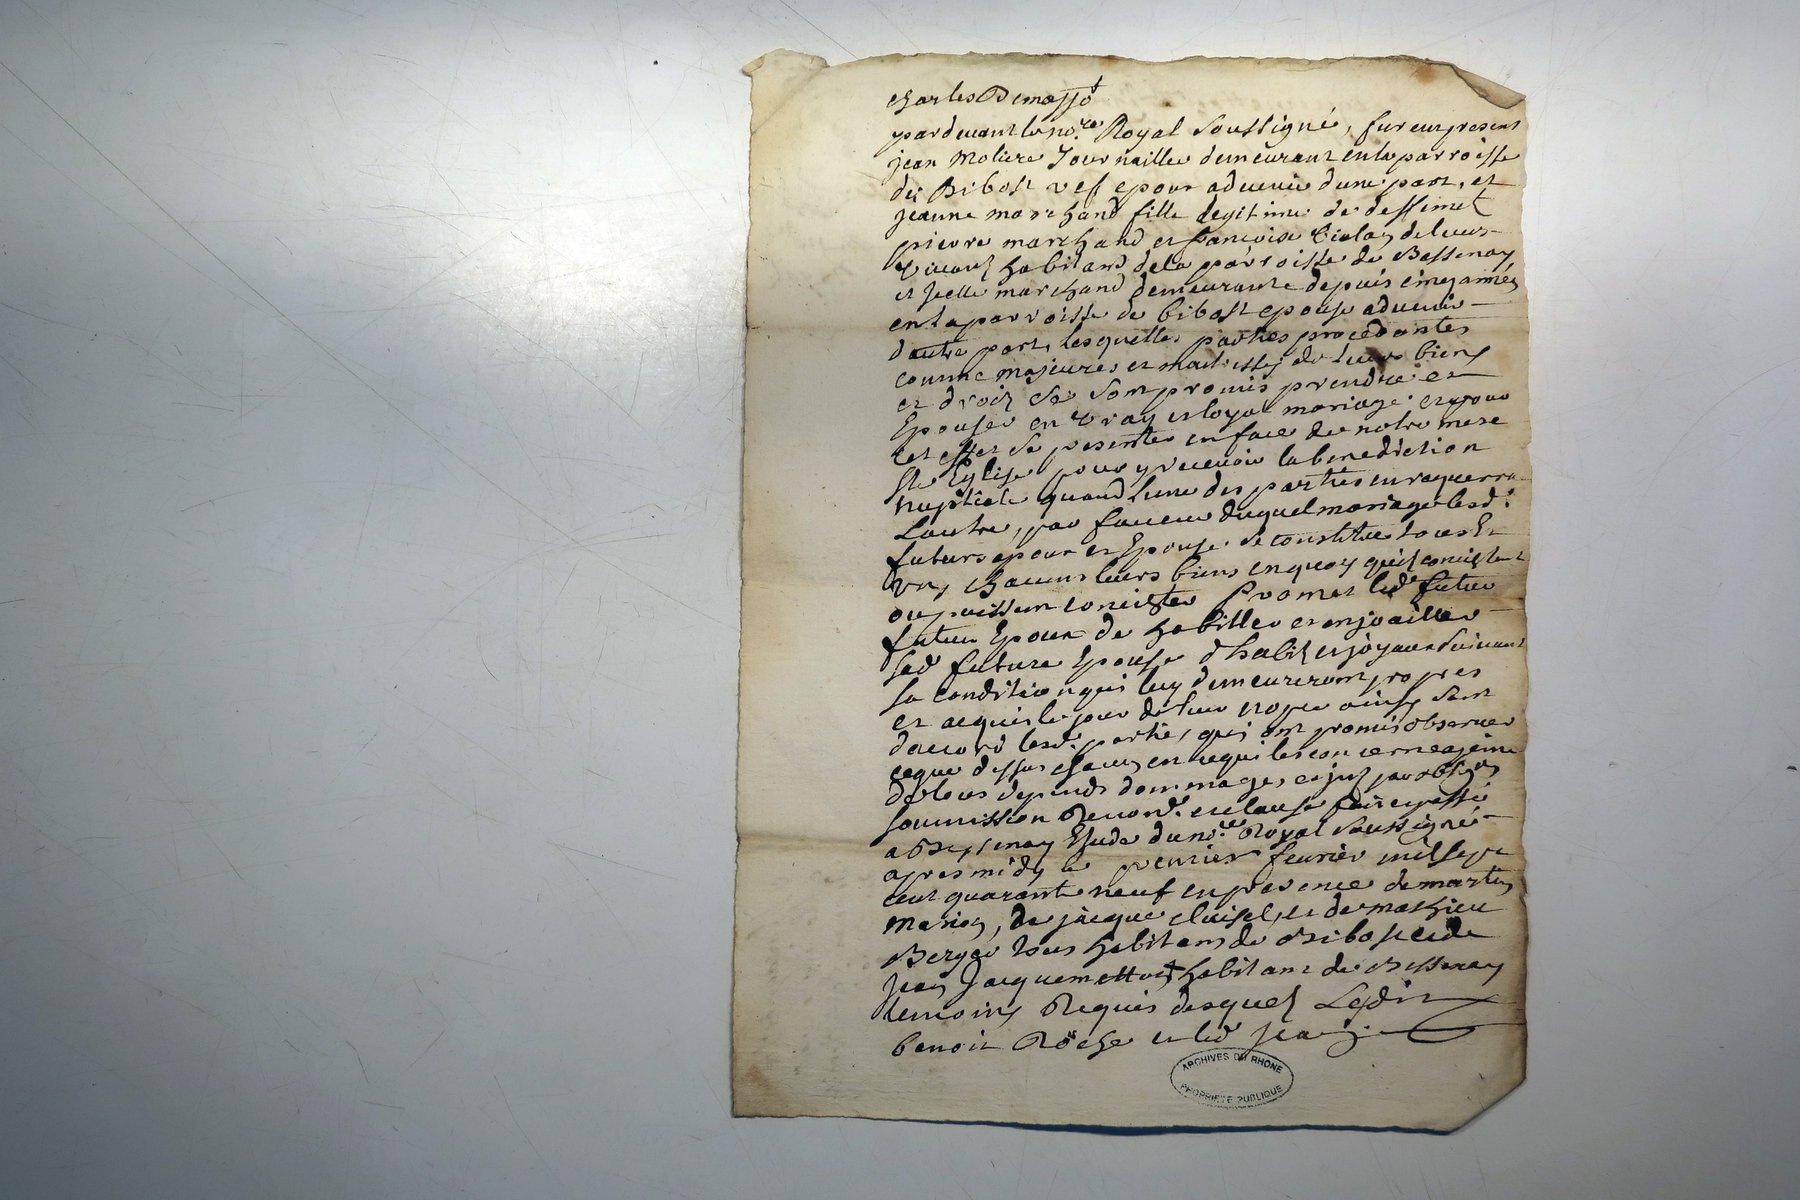 charles Demasso
pardevant le no.re Royal soussigné, furent present
jean moliere Journaillier demeurant en la parroisse
de Bibost vef epoux advenir dune part, et
jeanne marchand fille legitime de deffunct
pierre marchand et francoise violay de leurs
vivant habitand de la parroisse de Bessenay
et jcelle marchand demeurante depuis cinq années
en la parroisse de bibost epouse advenir
dautre part, lesquelles parties procedantes
comme majeures et maitresses de leurs biens
et droits se sont promis prendre et
Epouser en vray et loyal mariage et pour
cet effet se presenter en face de notre mere
ste Eglise pour y recevoir la benediction
nuptiale quand lune des parties en requerra
Lautre, par faveur duquel mariage lesd.
futurs epoux et Epouse se constitue tous et
un chacuns leurs biens en quoy quils consistent
ou puissent concister promet led. futur
futur Epoux de habiller et enjoailler
lad future Epouse d'habits et joyaux suivant
sa condition qui luy demeureront propres
et acquis le jour de leur nopce ainsy sont
daccord lesd. parties qui ont promis observer
ce que dessus chacun en ce qui les concerne a peine
de tous depends dommages et jnts par obligon
soumission Renond. et clause fait et passé
a Bessenay Etude du no.re Royal soussigné
apres midy le premier fevrier mil sept
cent quarante neuf en presence de martin
marion, de jacque cluisel, et de mathieu
Berger tous habitans de Bibost et de
Jean Jacquemetton habitant de Bessenay
temoins Requis desquels Lesdits
benoit Roche et led Jean
ARCHIVES DU RHONE
PROPRIETE PUBLIQUE